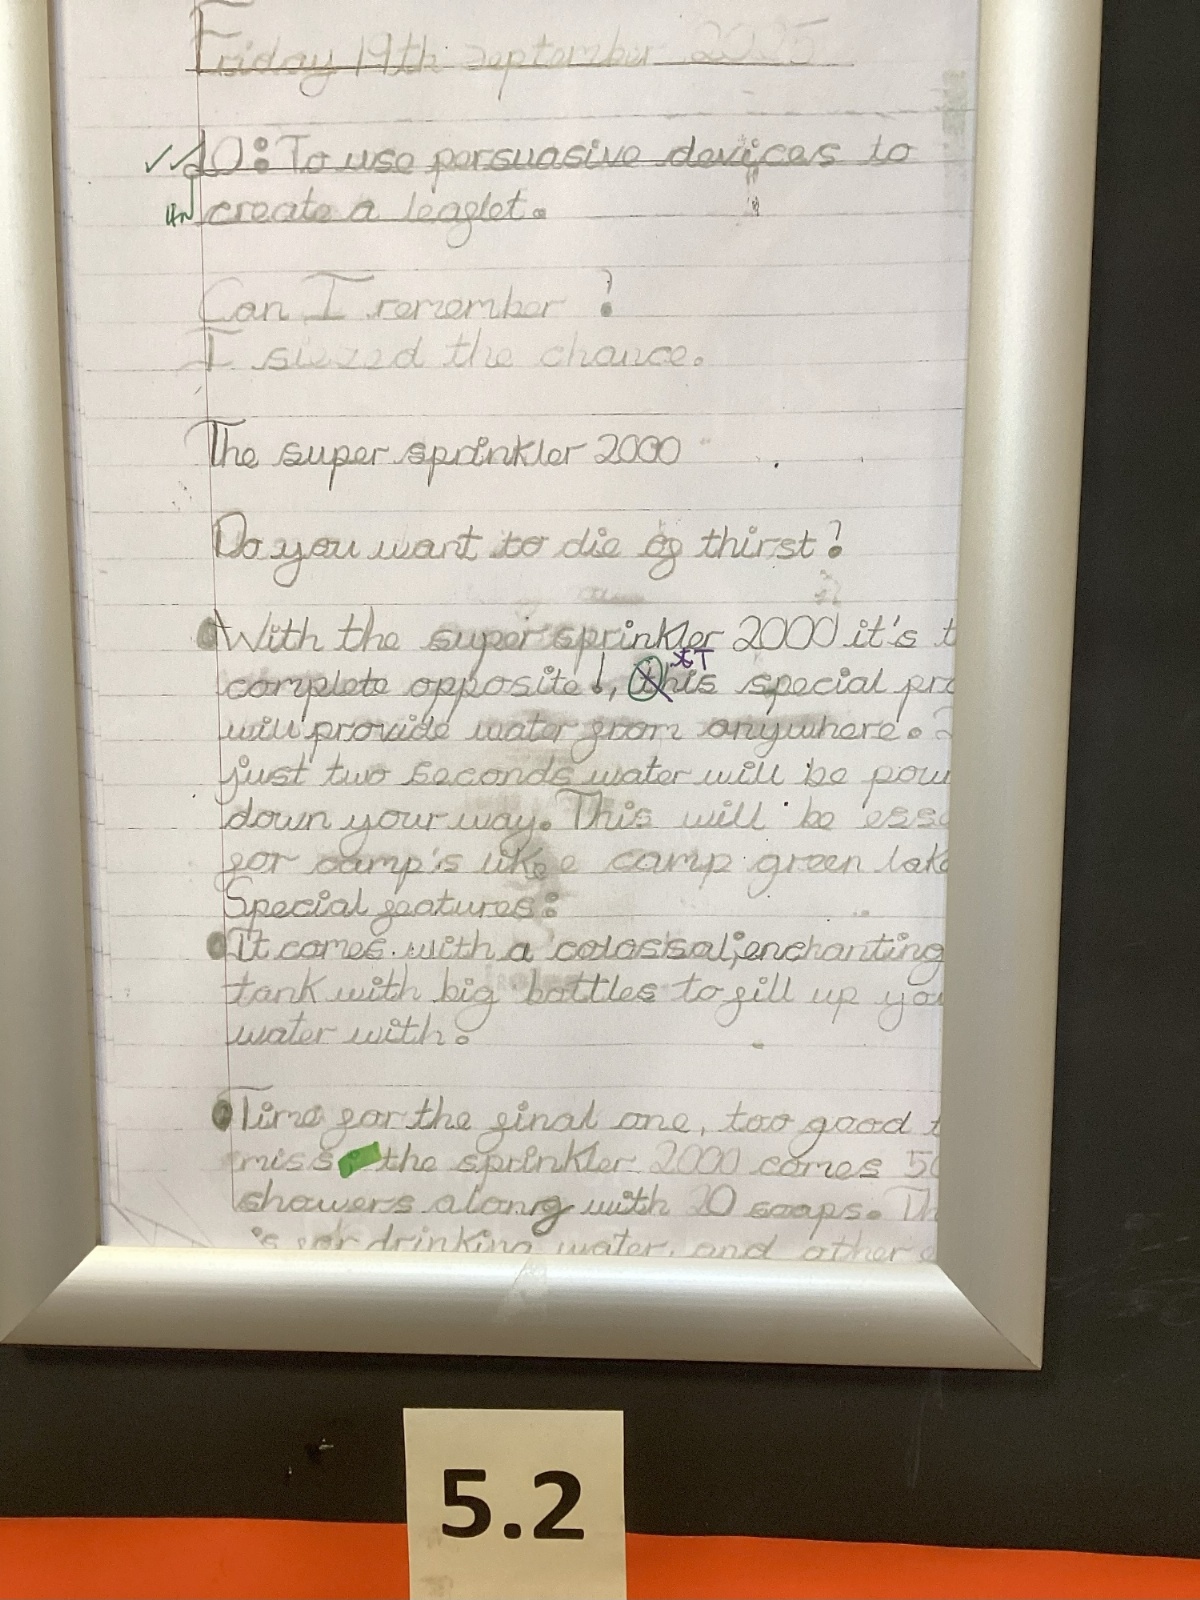 Friday 19th September 2025
LO: To use persuasive devices to
create a leaflet.
Can I remember?
I siezed the chance.
The super sprinkler 2000
Do you want to die of thirst?
With the super sprinkler 2000 it's t
complete opposite!, this special pro
will provide water from anywhere.
just two seconds water will be pow
down your way. This will be esse
for camp's like camp green lake
Special features:
It comes with a colossal, enchanting
tank with big bottles to fill up you
water with.
Time for the final one, too good t
miss: the sprinkler 2000 comes 50
showers along with 20 soaps. Th
is for drinking water, and other
5.2